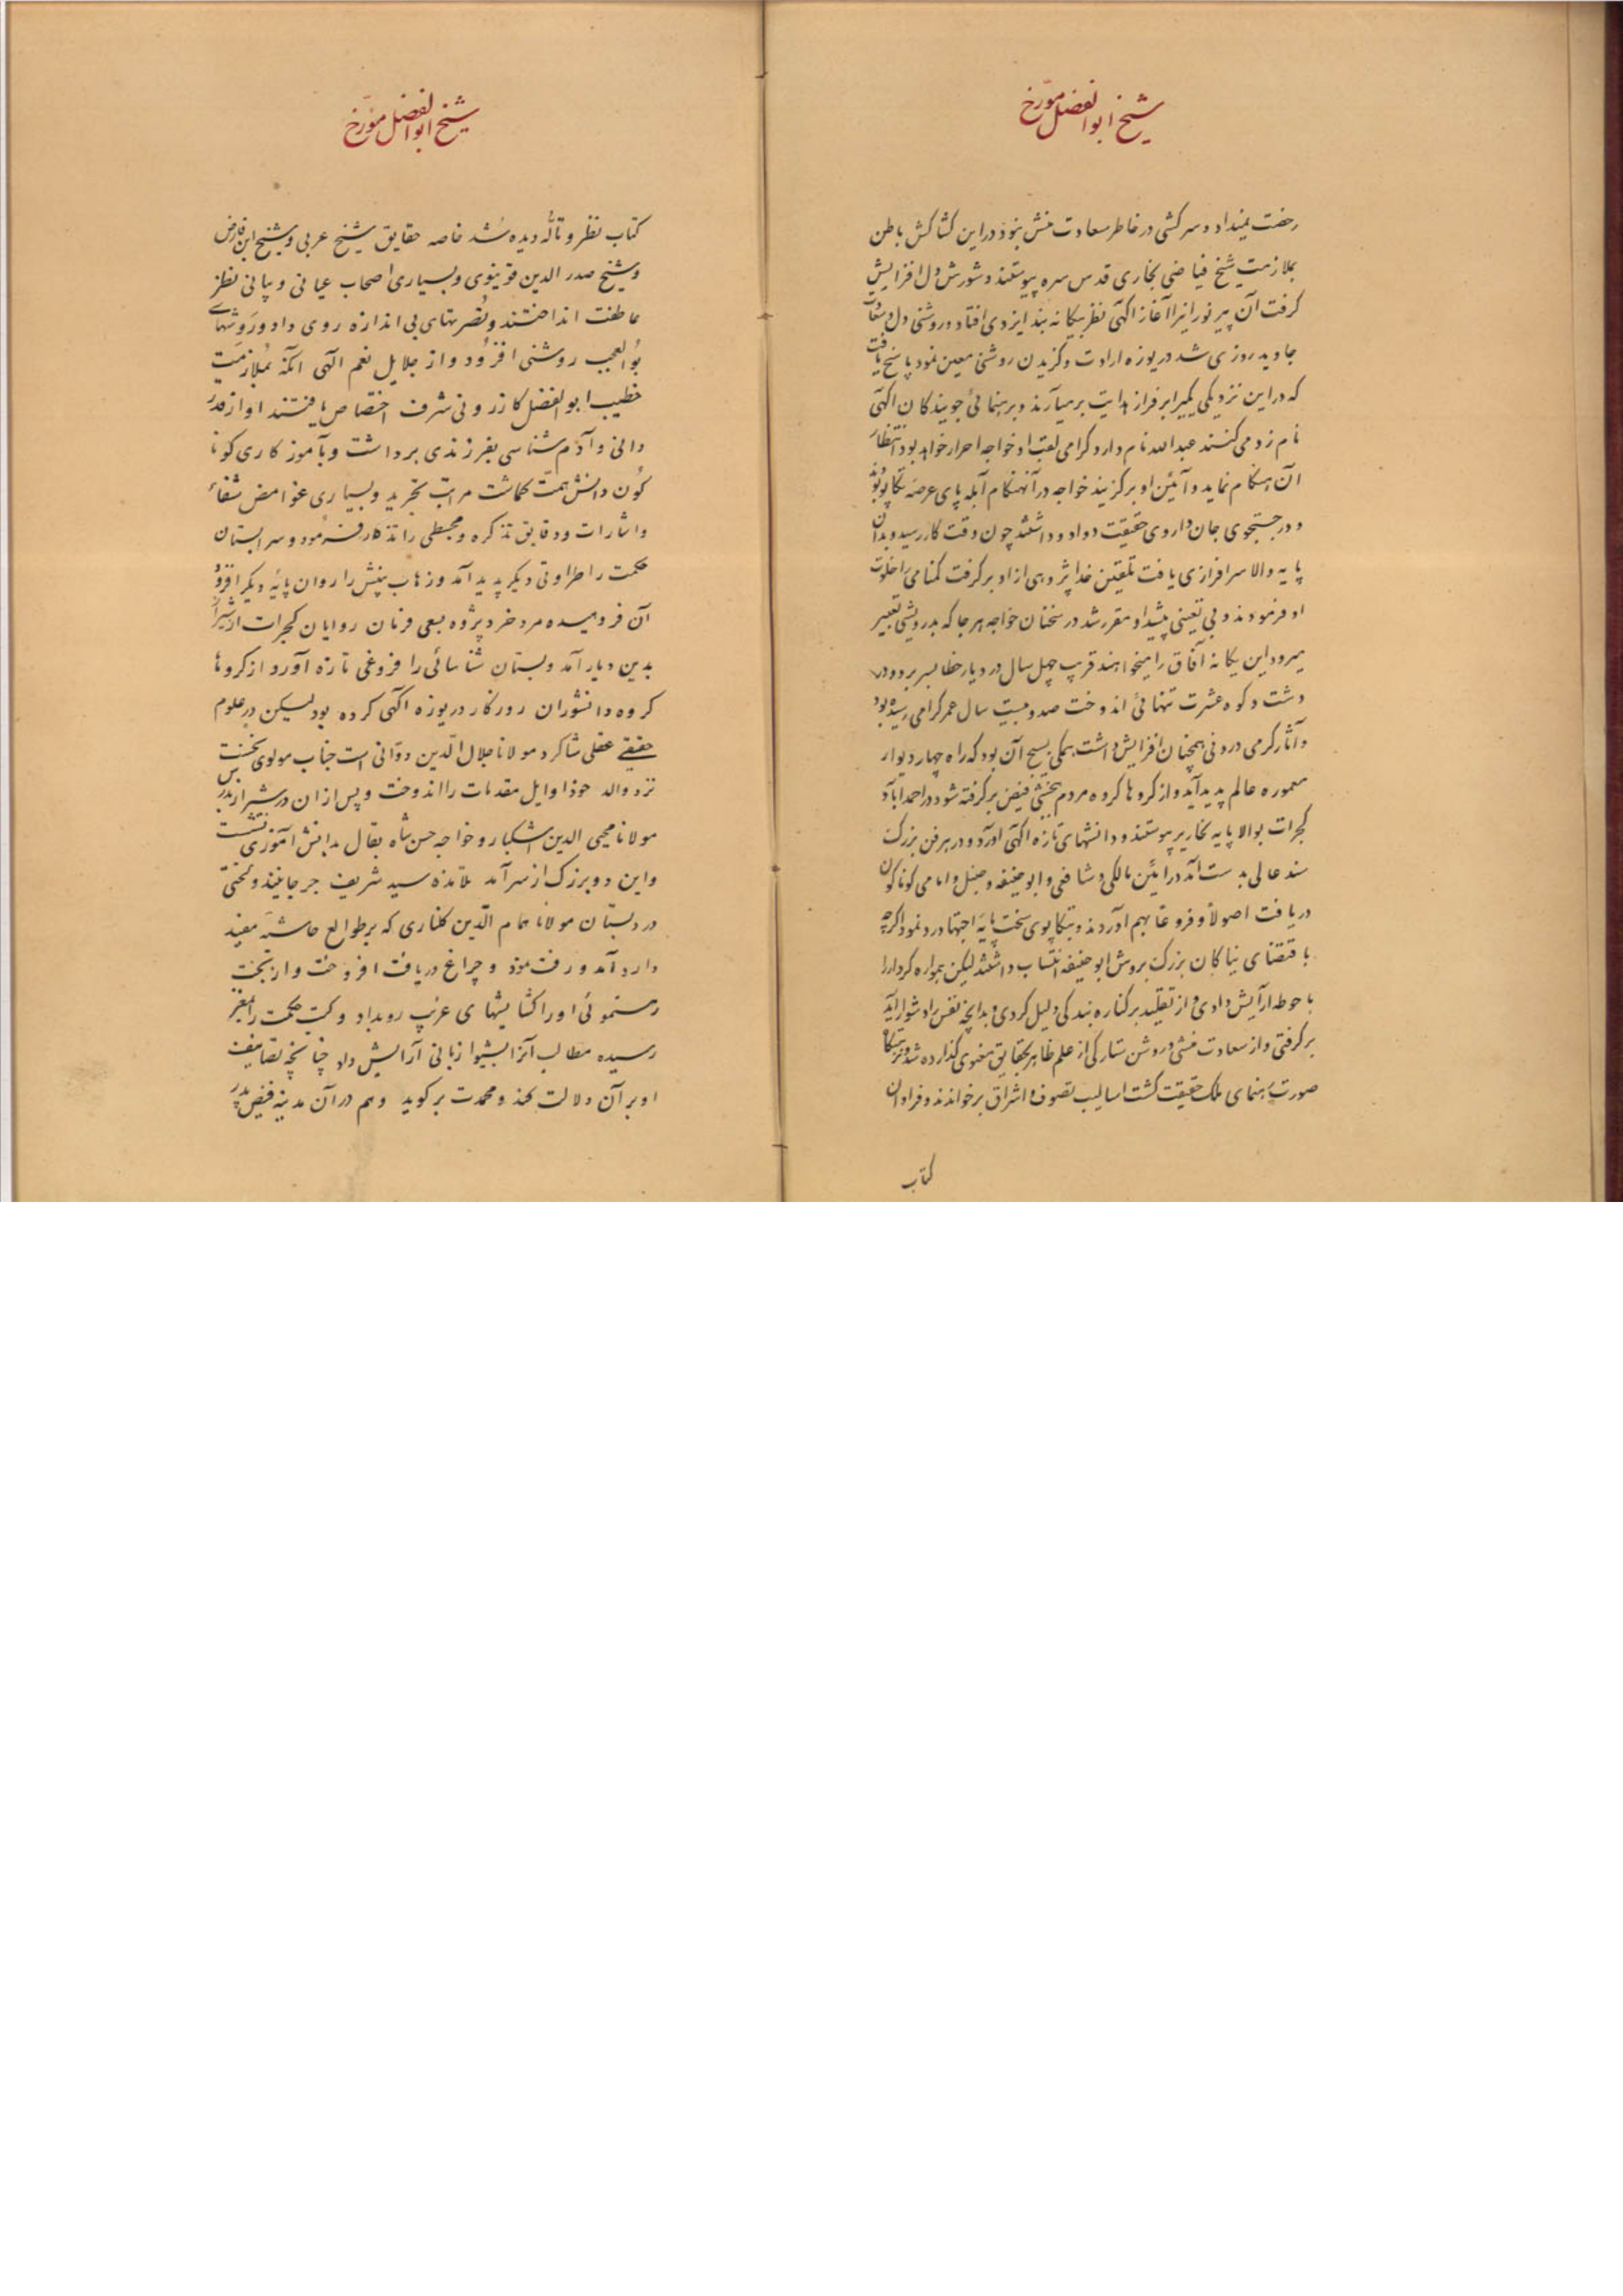 شیخ ابوالفضل مورّخ
رخصت نمیداد و سرکشی در خاطر سعادت منش نبود در این کشاکش باطن
بملازمت شیخ فیاضی بخاری قدس سره پیوستند و شورش دل افزایش
گرفت آن پیر نورانیرا آغاز آگهی نظر بیگانه بند ایزدی افتاد و روشنی دل و
جاوید روزی شد دریوزه ارادت و گزیدن روشنی معین نمود پاسخ یافت
که در این نزدیکی یکیرا بر فراز هدایت برمیآرند و برهنمائی جویندگان آگهی
نام زد میکنند عبدالله نام دارد و گرامی لقب او خواجه احرار خواهد بود انتظار
آن هنگام نماید و آئین او برگزیند خواجه در آنهنگام آبله پای عرصه تکاپو بود
و در جستجوی جان داروی حقیقت دوادو داشتند چون وقت کار رسید و بدان
پایه والا سرافرازی یافت تلقین خدا پژوهی از او برگرفت گمنامی را خلوت
او فرمودند و بی تعینی پیشه او مقرر شد در سخنان خواجه هر جا که بدرویشی تعبیر
میرود این یگانه آفاق را میخواهند قریب چهل سال در دیار خطا بسر برد و در
دشت و کوه عشرت تنهائی اندوخت صد و بیست سال عمر گرامی رسیده بود
و آثار گرمی درونی همچنان افزایش داشت همگی بسیج آن بود که راه چهار دیوار
معموره عالم پدید آید و از گروها گروه مردم بخشی فیض برگرفته شود در احمدآباد
گجرات بوالا پایه نحاریر پیوستند و دانشهای تازه آگهی آورد و در هر فن بزرگ
سند عالی بدست آمد در آئین مالکی و شافعی و ابوحنیفه و حنبل و امامی گوناگون
دریافت اصولاً و فروعاً بهم آوردند و بتکاپوی سخت پایه اجتهاد رو نمود اگرچه
باقتضای نیاگان بزرگ بروش ابوحنیفه انتساب داشتند لیکن همواره کردار را
باحوطه آرایش دادی و از تقلید برکناره بندگی دلیل کردی و بدانچه نفس را دشوار آید
برگرفتی و از سعادت منشی و روشن ستارگی از علم ظاهر بحقایق معنوی گذارده شد و
صورت رهنمای ملک حقیقت گشت اسالیب تصوف و اشراق برخواندند و فراوان
کتاب
شیخ ابوالفضل مورّخ
کتاب نظر و تألّه دیده شد خاصه حقایق شیخ عربی و شیخ ابن فارض
و شیخ صدر الدین قونیوی و بسیاری اصحاب عیانی و بیانی نظر
عاطفت انداختند و نصرتهای بی اندازه روی داد و روشهای
بوالعجب روشنی افزود و از جلایل نعم الهی آنکه بملازمت
خطیب ابوالفضل کازرونی شرف اختصاص یافتند او از قدر
دانی و آدم شناسی بفرزندی برداشت و بآموزگاری گونا
گون دانش همت گماشت مراتب تجرید و بسیاری غوامض شفاء
و اشارات و دقایق تذکره و مجسطی را تذکار فرمود و سرابستان
حکمت را طراوتی دیگر پدید آمد و زهاب بینش را روان پایه دیگر افزود
آن فرومیده مرد خرد پژوه بسعی فرمان روایان گجرات از شیراز
بدین دیار آمد و بستان شناسائی را فروغی تازه آورد از گروها
گروه دانشوران روزگار دریوزه آگهی کرده بود لیکن در علوم
حقیقے عقلی شاگرد مولانا جلال الدّین دوّانی است جناب مولوی نخست
نزد والد خود اوایل مقدمات را اندوخت و پس از آن در شیراز بدرس
مولانا محیی الدین اشکبار و خواجه حسن شاه بقال بدانش آموزی نشست
و این دو بزرگ از سرآمد تلامذه سید شریف جرجانیند و لختی
در دبستان مولانا همام الدّین گلناری که بر طوالع حاشیه مفید
دارد آمد و رفت نمود و چراغ دریافت افروخت و از بخت
رهنموئی او را گشایشهای غریب رویداد و کتب حکمت را بمغز
رسیده مطالب آنرا بشیوا زبانی آرایش داد چنانچه تصانیف
او بر آن دلالت کند و محمدت برگوید و هم در آن مدینه فیض پدر